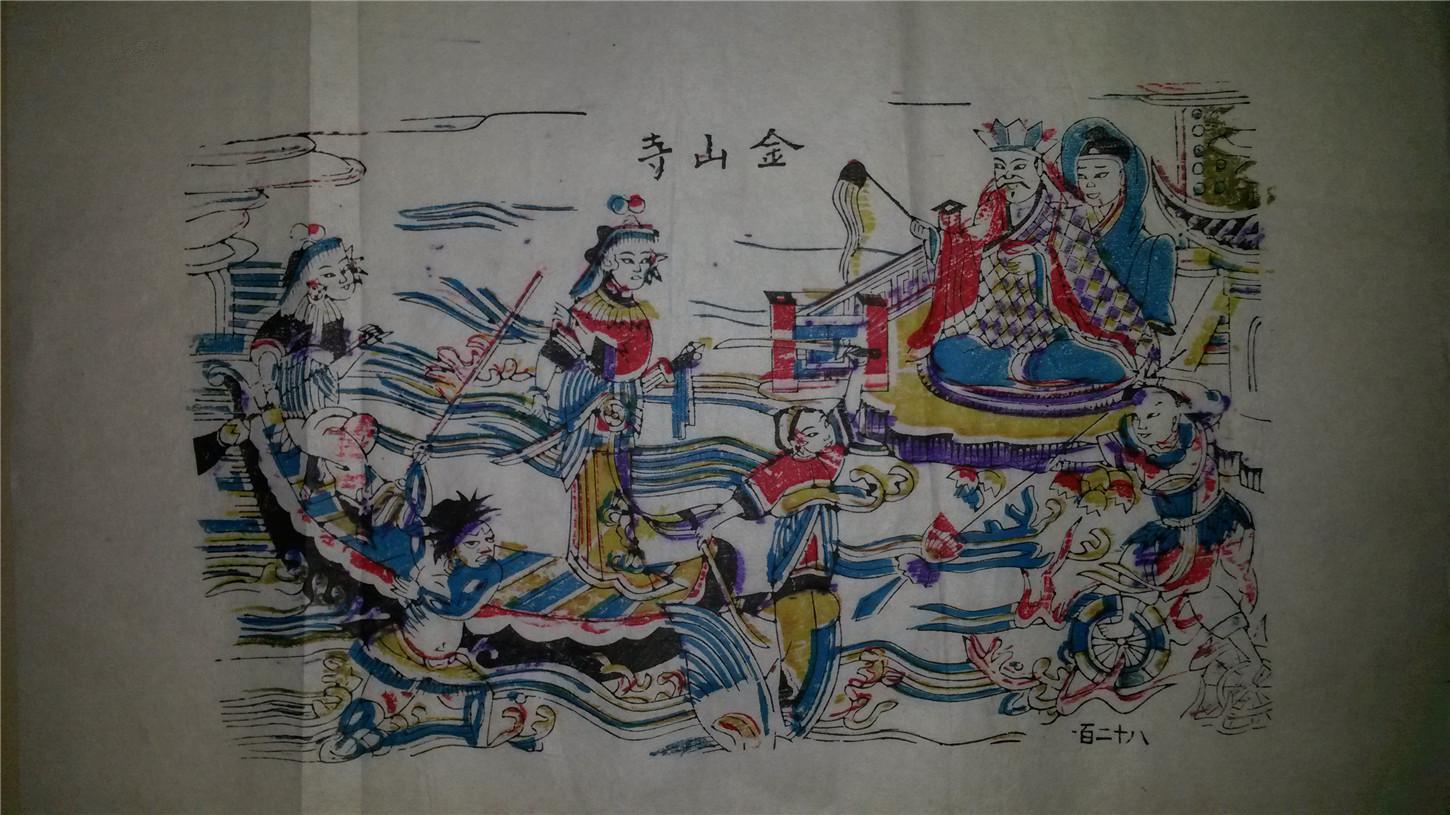 金山寺
一百二十八